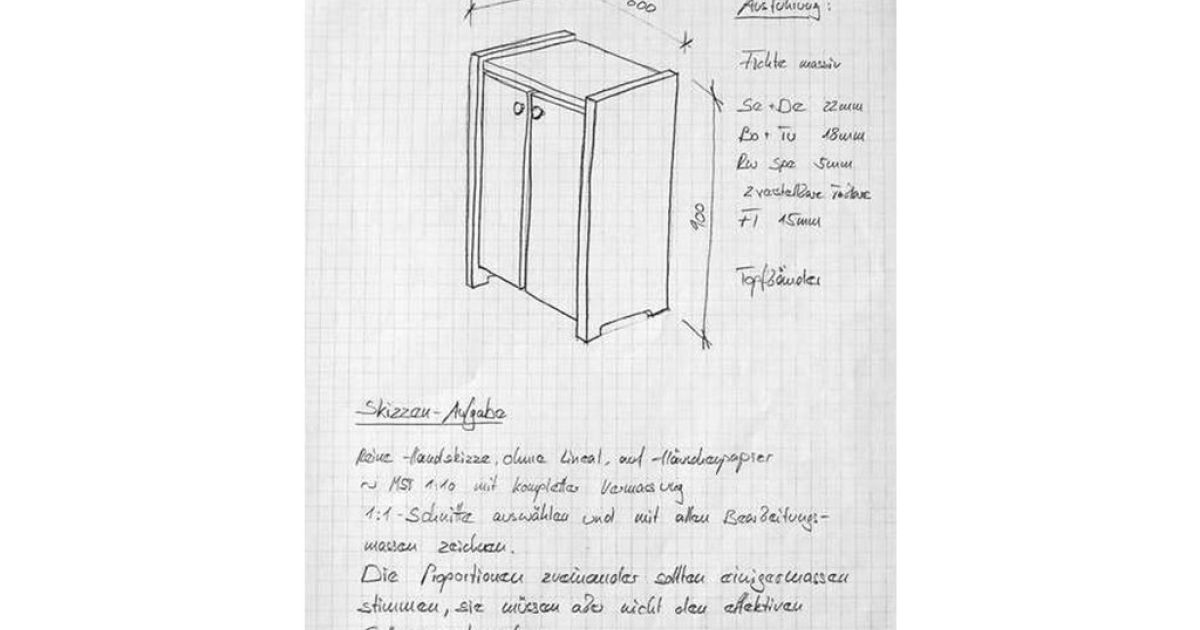 600
Ausführung:
Fichte massiv
Se + De 22mm
Bo + Tü 18mm
Rw Spe 5mm
2 verstellbare Tablare
FT 15mm
900
Topfbänder
Skizzen-Aufgabe
Reine Handskizze, ohne Lineal, auf Häuschenpapier
~ MST 1:10 mit kompletter Vermassung
1:1-Schnitte auswählen und mit allen Bearbeitungs-
massen zeichnen.
Die Proportionen zueinander sollten einigermassen
stimmen, sie müssen aber nicht den effektiven